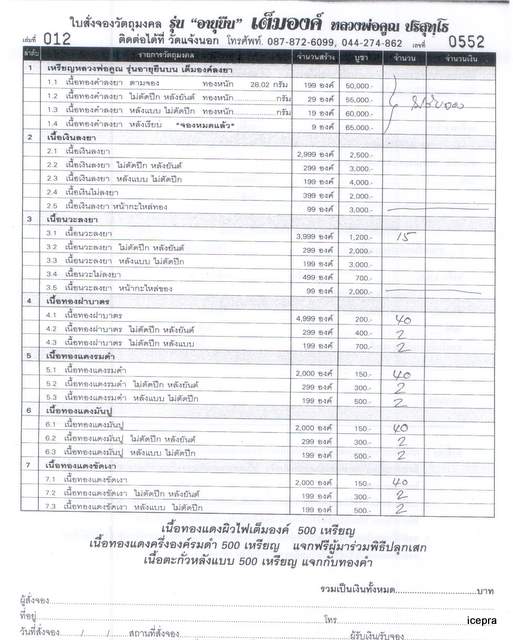 ใบสั่งจองวัตถุมงคล รุ่น "อายุยืน" เต็มองค์ หลวงพ่อคูณ ปริสุทฺโธ
เล่มที่ 012 ติดต่อได้ที่ วัดแจ้งนอก โทรศัพท์. 087-872-6099, 044-274-862 เลขที่ 0552
ลำดับ รายการวัตถุมงคล จำนวนสร้าง บูชา จำนวน จำนวนเงิน
1 เหรียญหลวงพ่อคูณ รุ่นอายุยืนบน เต็มองค์ลงยา
1.1 เนื้อทองคำลงยา ตามจอง ทองหนัก 28.02 กรัม 199 องค์ 50,000.-
1.2 เนื้อทองคำลงยา ไม่ตัดปีก หลังยันต์ ทองหนัก กรัม 29 องค์ 55,000.-
1.3 เนื้อทองคำลงยา หลังแบบ ไม่ตัดปีก ทองหนัก กรัม 19 องค์ 60,000.-
1.4 เนื้อทองคำลงยา หลังเรียบ *จองหมดแล้ว* 9 องค์ 65,000.-
2 เนื้อเงินลงยา
2.1 เนื้อเงินลงยา 2,999 องค์ 2,500.-
2.2 เนื้อเงินลงยา ไม่ตัดปีก หลังยันต์ 299 องค์ 3,000.-
2.3 เนื้อเงินลงยา หลังแบบ ไม่ตัดปีก 199 องค์ 4,000.-
2.4 เนื้อเงินไม่ลงยา 399 องค์ 2,000.-
2.5 เนื้อเงินลงยา หน้ากะไหล่ทอง 99 องค์ 3,000.-
3 เนื้อนวะลงยา
3.1 เนื้อนวะลงยา 3,999 องค์ 1,200.- 15
3.2 เนื้อนวะลงยา ไม่ตัดปีก หลังยันต์ 299 องค์ 2,000.-
3.3 เนื้อนวะลงยา หลังแบบ ไม่ตัดปีก 199 องค์ 3,000.-
3.4 เนื้อนวะไม่ลงยา 499 องค์ 700.-
3.5 เนื้อนวะลงยา หน้ากะไหล่ทอง 99 องค์ 2,000.-
4 เนื้อทองฝาบาตร
4.1 เนื้อทองฝาบาตร 4,999 องค์ 200.- 40
4.2 เนื้อทองฝาบาตร ไม่ตัดปีก หลังยันต์ 299 องค์ 400.- 2
4.3 เนื้อทองฝาบาตร ไม่ตัดปีก หลังแบบ 199 องค์ 700.- 2
5 เนื้อทองแดงรมดำ
5.1 เนื้อทองแดงรมดำ 2,000 องค์ 150.- 40
5.2 เนื้อทองแดงรมดำ ไม่ตัดปีก หลังยันต์ 299 องค์ 300.- 2
5.3 เนื้อทองแดงรมดำ หลังแบบ ไม่ตัดปีก 199 องค์ 500.- 2
6 เนื้อทองแดงมันปู
6.1 เนื้อทองแดงมันปู 2,000 องค์ 150.- 40
6.2 เนื้อทองแดงมันปู ไม่ตัดปีก หลังยันต์ 299 องค์ 300.- 2
6.3 เนื้อทองแดงมันปู หลังแบบ ไม่ตัดปีก 199 องค์ 500.- 2
7 เนื้อทองแดงขัดเงา
7.1 เนื้อทองแดงขัดเงา 2,000 องค์ 150.- 40
7.2 เนื้อทองแดงขัดเงา ไม่ตัดปีก หลังยันต์ 199 องค์ 300.- 2
7.3 เนื้อทองแดงขัดเงา หลังแบบ ไม่ตัดปีก 199 องค์ 500.- 2
เนื้อทองแดงผิวไฟเต็มองค์ 500 เหรียญ
เนื้อทองแดงครึ่งองค์รมดำ 500 เหรียญ แจกฟรีผู้มาร่วมพิธีปลุกเสก
เนื้อตะกั่วหลังแบบ 500 เหรียญ แจกกับทองคำ
รวมเป็นเงินทั้งหมด....................บาท
ผู้สั่งจอง
ที่อยู่ โทร icepra
วันที่สั่งจอง / / สถานที่สั่งจอง ผู้รับเงิน/รับจอง